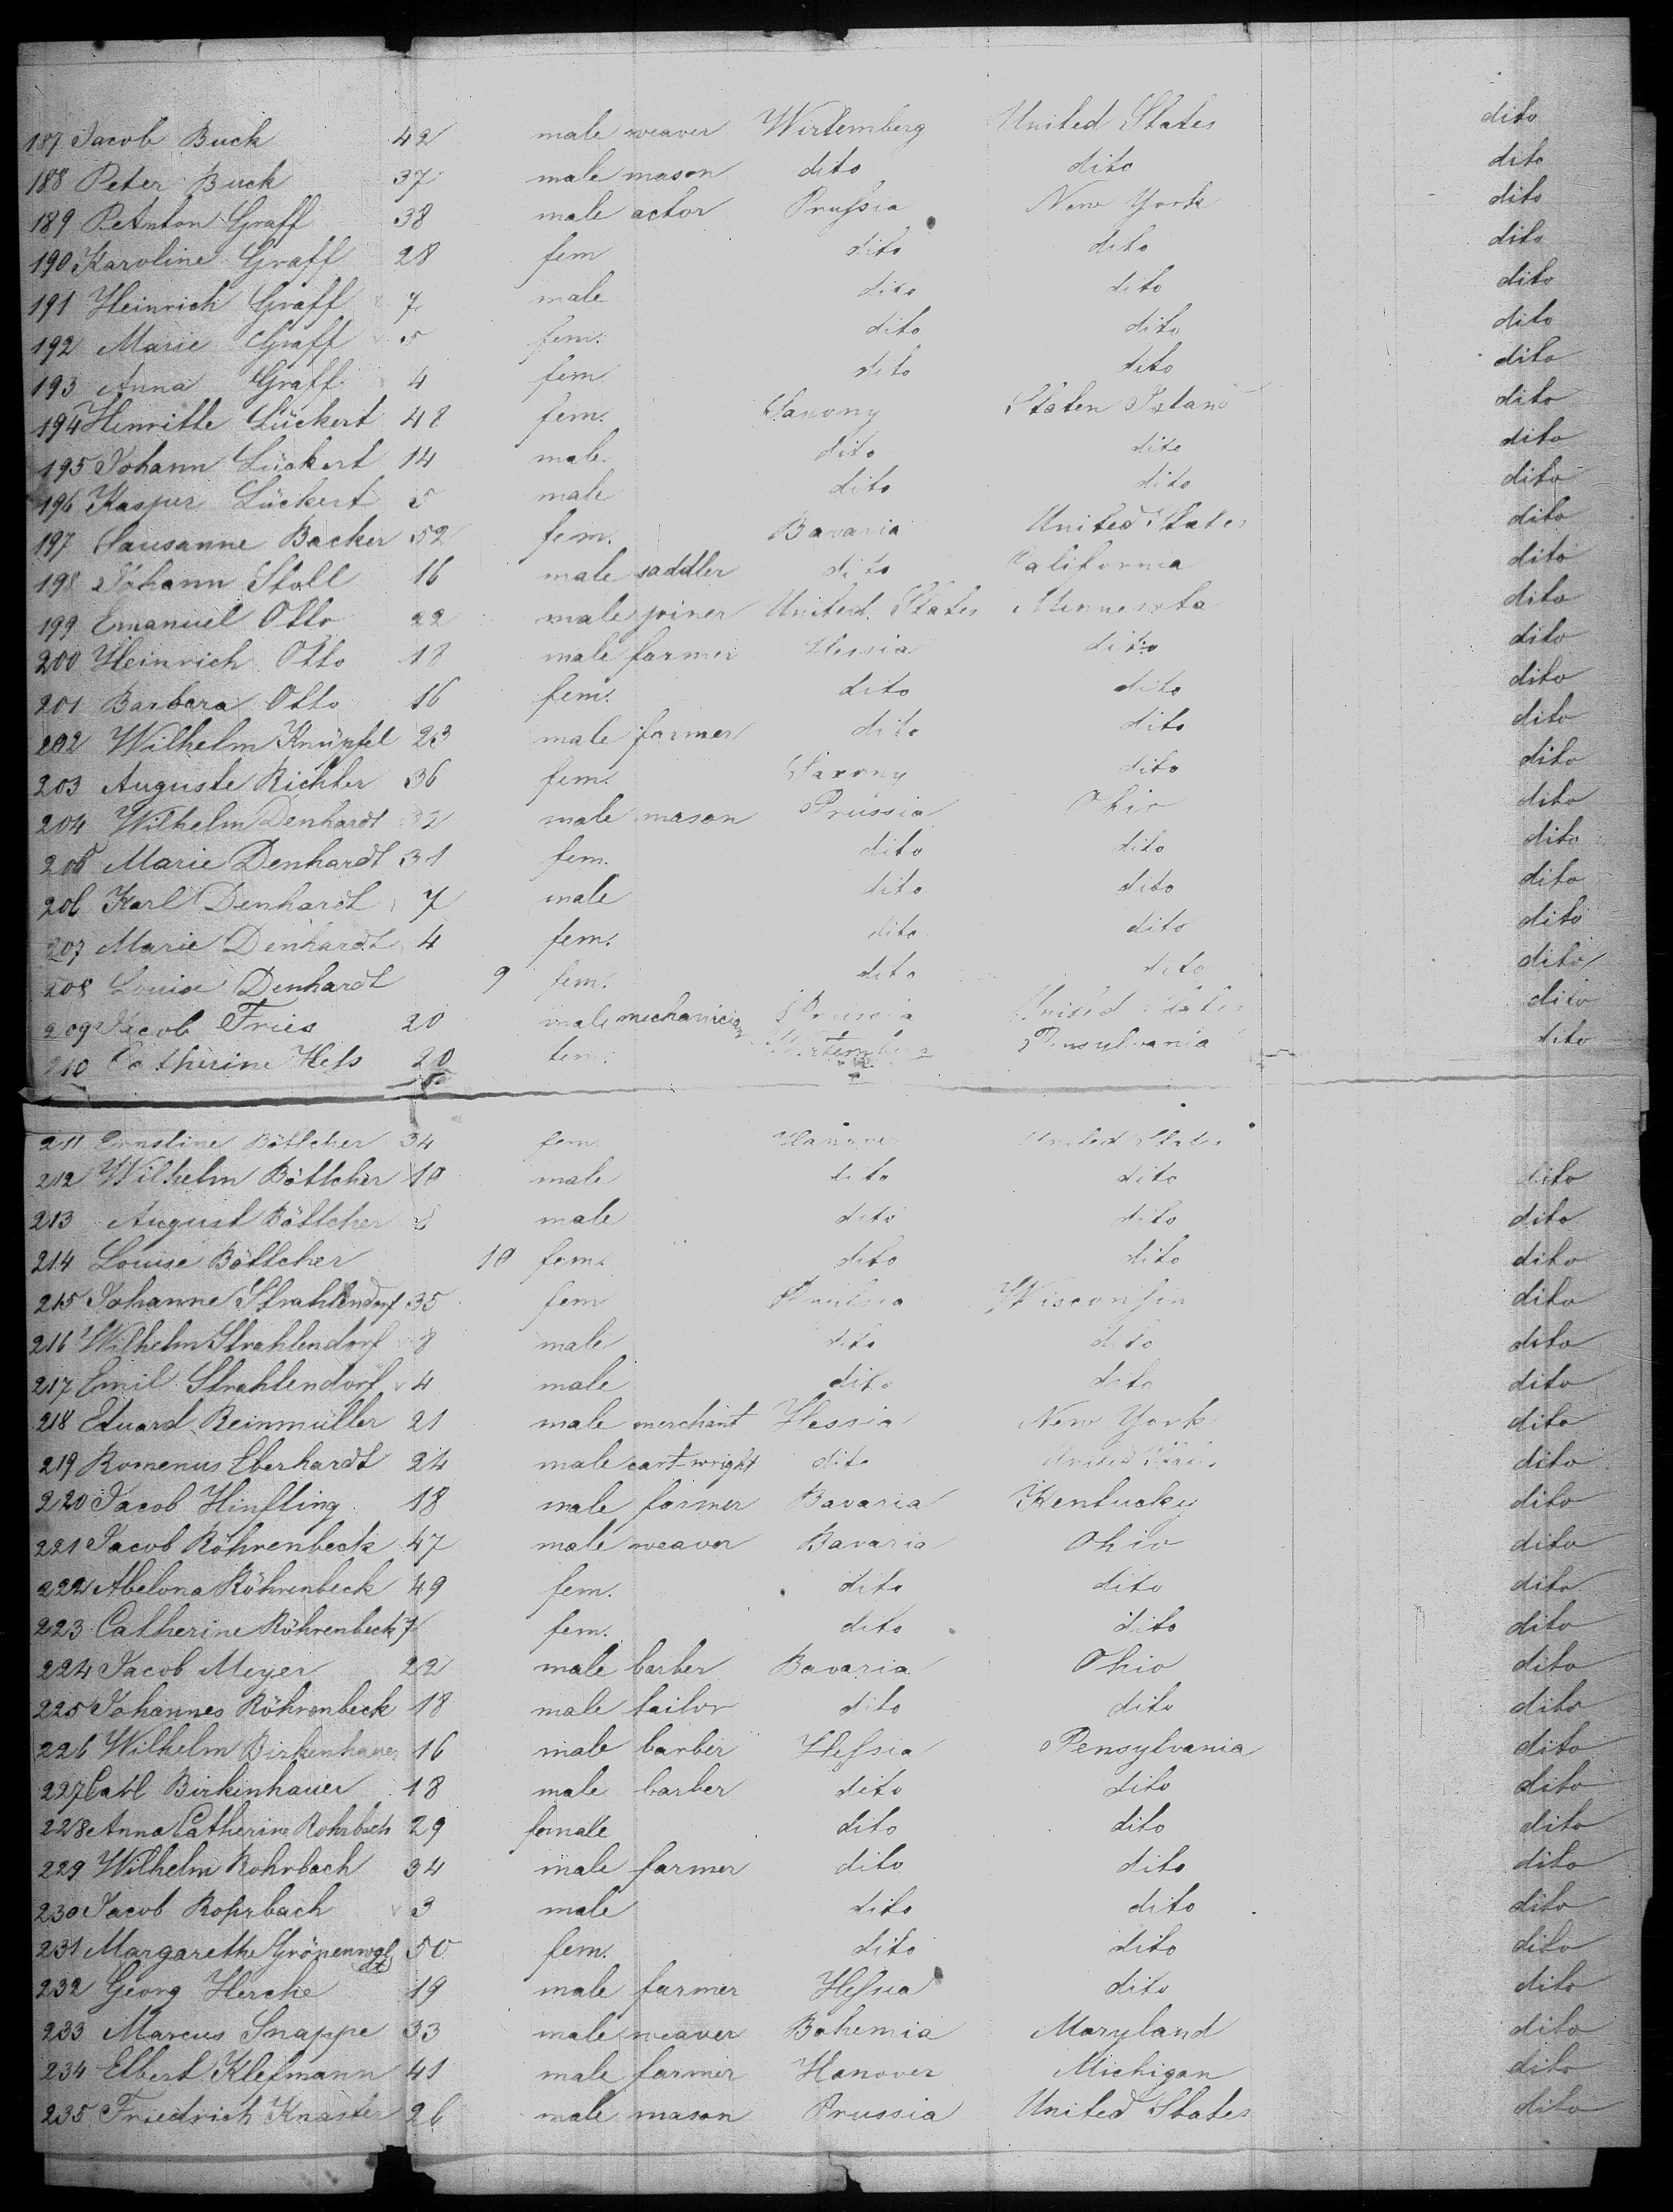 187 Jacob Buck 42 male weaver Wirtemberg United States dito
188 Peter Buck 37 male mason dito dito dito
189 P Anton Graff 38 male actor Prussia New York dito
190 Karoline Graff 28 fem dito dito dito
191 Heinrich Graff 7 male dito dito dito
192 Marie Graff 5 fem. dito dito dito
193 Anna Graff 4 fem dito dito dito
194 Henritte Lückert 48 fem. Saxony Staten Island dito
195 Johann Lückert 14 male. dito dito dito
196 Kaspur Lückert 5 male dito dito dito
197 Sausanne Backer 52 fem. Bavaria United States dito
198 Johann Stoll 16 male saddler dito California dito
199 Emanuel Otto 22 male joiner United States Minnesota dito
200 Heinrich Otto 18 male farmer Hessia dito dito
201 Barbara Otto 16 fem. dito dito dito
202 Wilhelm Knüpfel 23 male farmer dito dito dito
203 Auguste Richter 36 fem. Saxony dito dito
204 Wilhelm Denhardt 32 male mason Prussia Ohio dito
205 Marie Denhardt 31 fem. dito dito dito
206 Karl Denhardt 7 male dito dito dito
207 Marie Denhardt 4 fem. dito dito dito
208 Louise Denhardt 9 fem. dito dito dito
209 Jacob Fries 20 male mechanician Prussia United States dito
210 Catherine Hess 20 fem. Wirtemberg Pensylvania dito
211 Ernstine Böttcher 34 fem. Hanover United States
212 Wilhelm Böttcher 10 male dito dito dito
213 August Böttcher 8 male dito dito dito
214 Louise Böttcher 10 fem. dito dito dito
215 Johanne Strahlendorf 35 fem Prussia Wisconsin dito
216 Wilhelm Strahlendorf 8 male dito dito dito
217 Emil Strahlendorf 4 male dito dito dito
218 Eduard Reinmüller 21 male merchant Hessia New York dito
219 Romenus Eberhardt 24 male cart-wright dito United States dito
220 Jacob Hinfling 18 male farmer Bavaria Kentucky dito
221 Jacob Röhrenbeck 47 male weaver Bavaria Ohio dito
222 Abelona Röhrenbeck 49 fem. dito dito dito
223 Catherine Röhrenbeck 7 fem. dito dito dito
224 Jacob Meyer 22 male barber Bavaria Ohio dito
225 Johannes Röhrenbeck 18 male tailor dito dito dito
226 Wilhelm Birkenhauer 16 male barber Hessia Pensylvania dito
227 Carl Birkinhauer 18 male barber dito dito dito
228 Anna Catherine Rohrbach 29 female dito dito dito
229 Wilhelm Rohrbach 34 male farmer dito dito dito
230 Jacob Rohrbach 3 male dito dito dito
231 Margarethe 50 fem. dito dito dito
232 Georg Herche 19 male farmer Hessia dito dito
233 Marcus Snappe 33 male weaver Bohemia Maryland dito
234 Elbert Klefmann 41 male farmer Hanover Michigan dito
235 Friedrich Knaster 26 male mason Prussia United States dito